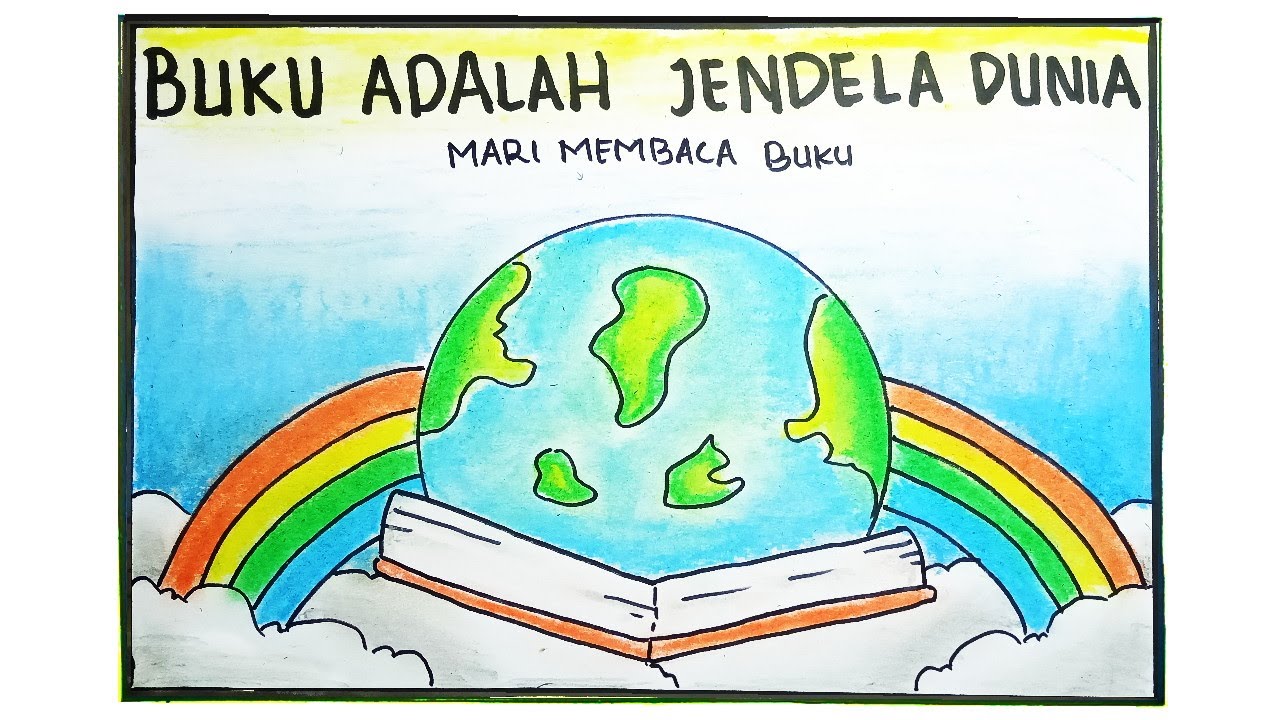 BUKU ADALAH JENDELA DUNIA
MARI MEMBACA BUKU